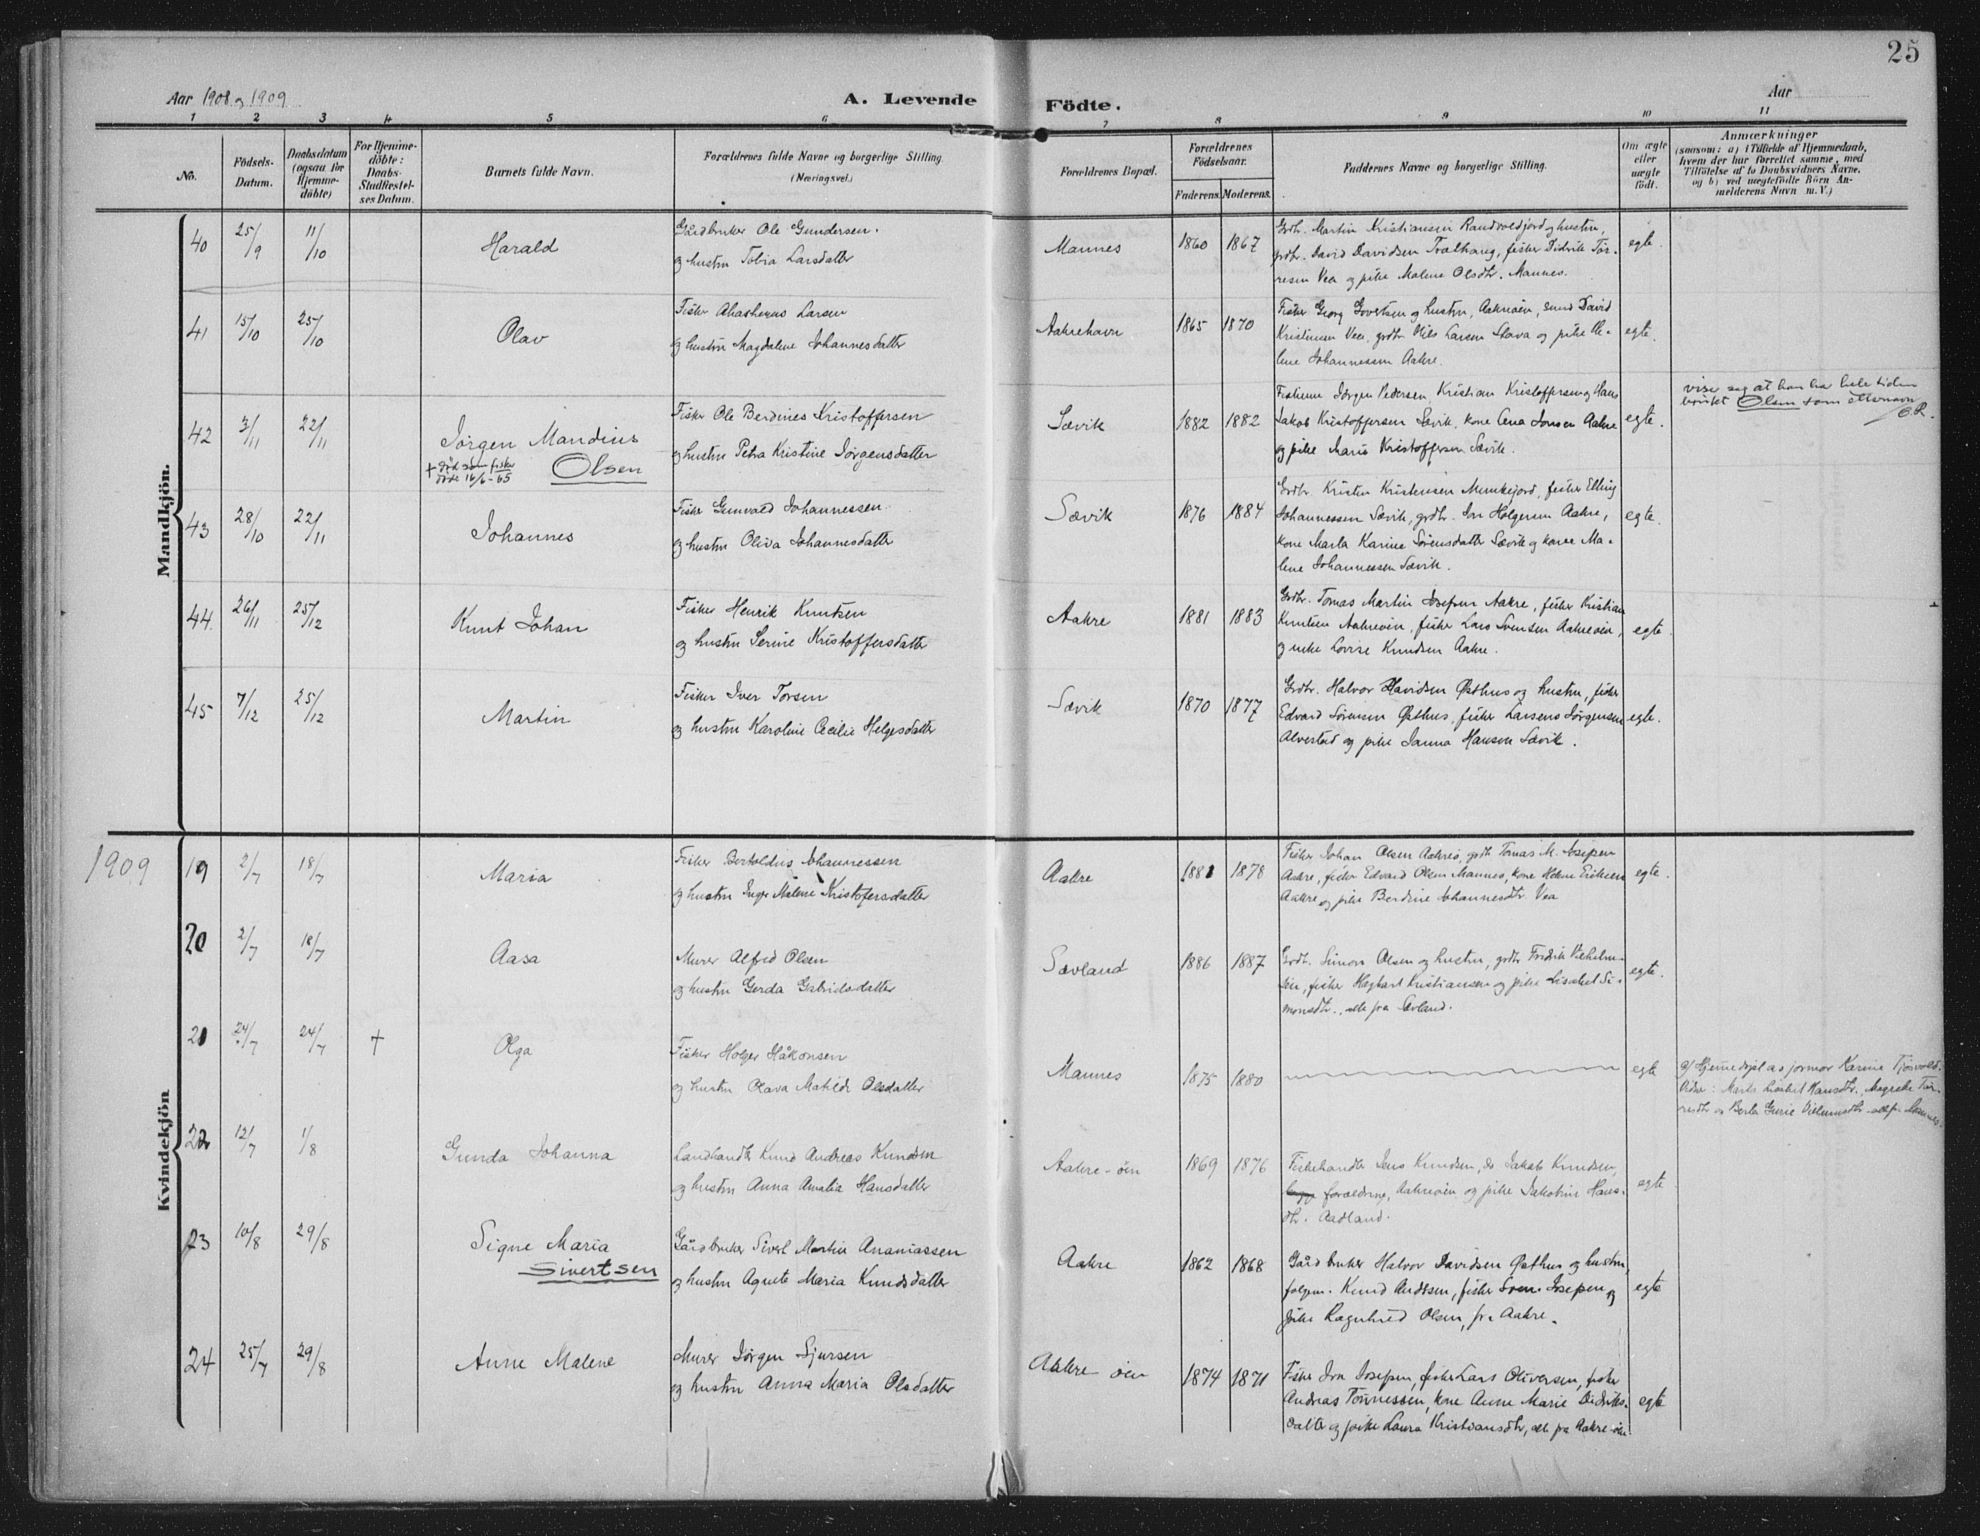 25
Aar 1908 og 1909
A. Levende
Födte.
Aar
1 2 3 4 5 6 7 8 9 10 11
No.
Födsels-
Datum.
Daabsdatum
(ogsaa for
Hjemme-
döbte)
For Hjemme-
döbte:
Daabs-
Stadfæstel-
ses Datum.
Barnets fulde Navn.
Forældrenes fulde Navne og borgerlige Stilling.
(Næringsvei.)
Forældrenes Bopæl.
Forældrenes
Födselsaar.
Faderens. Moderens.
Faddernes Navne og borgerlige Stilling.
Om ægte
eller
uægte
födt.
Anmærkninger
(saasom: a) i Tilfælde af Hjemmedaab,
hvem der har forrettet samme, med
Tilföielse af to Daabsvidners Navne.
og b) ved uægtefödte Börn An-
melderens Navn m. V.)
Mandkjön.
40 25/9 11/10 Harald
Gårdbruker Ole Gundersen.
og hustru Tobia Larsdatter
Mannes 1860 1867
Grdbr. Martin Kristiansen og hustru,
grdbr. David Davidsen Trælhaug, fisker Didrik Tor-
resen Vea og pike Malene Olsdtr. Mannes.
egte.
41 15/10 25/10 Olav
Fisker Larsen
og hustru Magdalene Johannesdatter
Aakrehavn 1865 1870
Fisker Georg Govertsen og hustru, Aakreøen, David
Kristensen Vea, grdbr Nils Larsen Stava og pike El-
lene Johannessen Aakre.
egte.
42 3/11 22/11 Jørgen Mandius
Olsen
+ død som fisker
døde 16/6-65
Fisker Ole Berdines Kristoffersen
og hustru Petra Kristine Jørgensdatter
Sævik 1882 1882
Fiskerne Jørgen Pedersen, Kristian Kristoffersen og Hans
Jakob Kristoffersen Sævik, kone Jonsen Aakre
og pike Marie Kristoffersen Sævik.
egte.
viser seg at han har hele tiden
brukt Olsen som etternavn
43 28/10 22/11 Johannes
Fisker Gunvald Johannessen
og hustru Oliva Johannesdatter
Sævik 1876 1884
Grdbr. Kristen Kristensen Munkejord, fisker Elling
Johannessen Sævik, grdbr. Jon Holgersen Aakre,
kone Marta Karine Sørensdatter Sævik og kone Ma-
lene Johannessen Sævik.
egte.
44 26/11 25/12 Knut Johan
Fisker Henrik Knutsen
og hustru Serine Kristoffersdatter
Aakre 1881 1883
Grdbr. Tomas Martin Josefsen Aakre, fisker Kristian
Knutsen Aakreøen, fisker Lars Svensen Aakreøen,
og pike Lovise Knudsen Aakre.
egte
45 7/12 25/12 Martin
Fisker Iver Torsen
og hustru Karoline Cecilie Helgesdatter
Sævik 1870 1877
Grdbr. Halvor Davidsen Østhus og hustru, fisker
Edvard Sørensen Østhus, fisker Larsens Jørgensen
Alvestad og pike Janna Hansen Sævik.
egte.
1909
Kvindekjön
19 2/7 18/7 Maria
Fisker Bertoldus Johannessen
og hustru Inger Malene Kristofersdatter
Aakre 1881 1878
Fisker Johan Olsen Aakreø, grdb Tomas M. Josefsen
Aakre, fisker Edvard Olsen Mannes, kone Helene Eriksen
Aakre og pike Berdine Johannesdtr. Vea
egte.
20 2/7 18/7 Aasa
Murer Alfred Olsen
og hustru Gerda Gabrielsdatter
Sævland 1886 1887
Grdb. Simon Olsen og hustru, grdbr Fredrik Vilhelm-
sen, fisker Kristiansen og pike Lisabet Si-
monsdtr., alle fra Sævland.
egte.
21 24/7 24/7 + Olga
Fisker Holger Håkonsen
og hustru Olava Matilde Olsdatter
Mannes 1875 1880
egte
af Hjemmedøpt av jormor Karine
Vidner: Marta Lisabet Hansdtr., Magrete Tor-
resdtr og Berta Gurie alle fr. Mannes.
22 12/7 1/8 Gunda Johanna
Landhandler Knud Andreas Knudsen
og hustru Anna Amalia Hansdatter
Aakre-öen 1869 1876
Fiskehandler Jens Knudsen, do Jakob Knudsen,
begge forældrene, Aakreøen og pike Jakobine Hans-
dtr. Aadland.
egte
23 10/8 29/8 Signe Maria
Sivertsen
Gårdbruker Sivert Martin Ananiassen
og hustru Agnete Maria Knudsdatter
Aakre 1862 1868
Gårdbruker Halvor Davidsen Østhus og hustru,
Knud Andersen, fisker Sven Josefsen og
pike Ragnhild Olsen, fra Aakre.
egte
24 25/7 29/8 Anne Malene
Murer Jørgen Sjursen
og hustru Anna Maria Olsdatter
Aakre öen 1874 1871
Fisker Jon Josefsen, fisker Lars Oliversen, fisker
Andreas Tönnessen, kone Anne Marie Didriks-
datter og pike Laura Kristiansdtr, alle fra Aakre-öen
egte